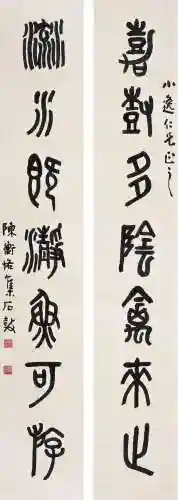 小逸仁兄正之
嘉尌多陰禽來止
流水既瀞魚可斿
陳衡恪集石鼓